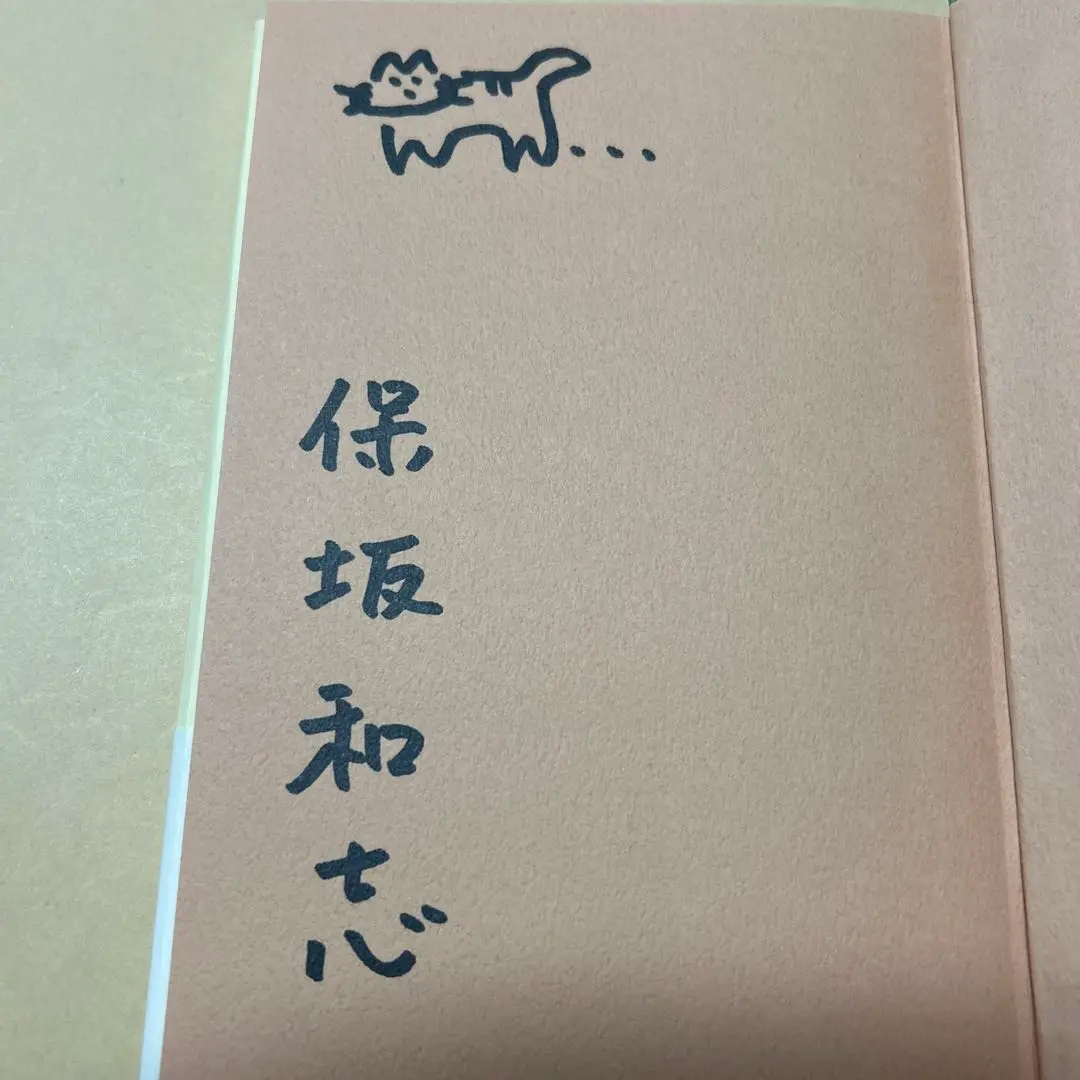 保坂和志